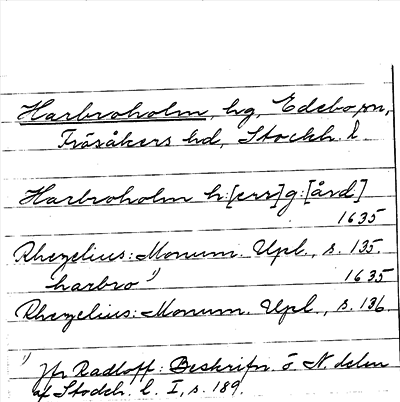 Harbroholm, hg, Edebo sn,
Frösåkers hd, Stockh. l.
Harbroholm h:[err]g:[ård]
1635
Rhezelius: Monum. Upl., s. 135.
harbro ¹) 1635
Rhezelius: Monum. Upl., s. 136
¹) Jfr Radloff: Beskrifn. ö. N. delen
af Stockh. l. I, s. 189.